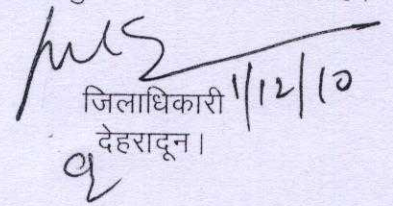 जिलाधिकारी 1/12/10
देहरादून।